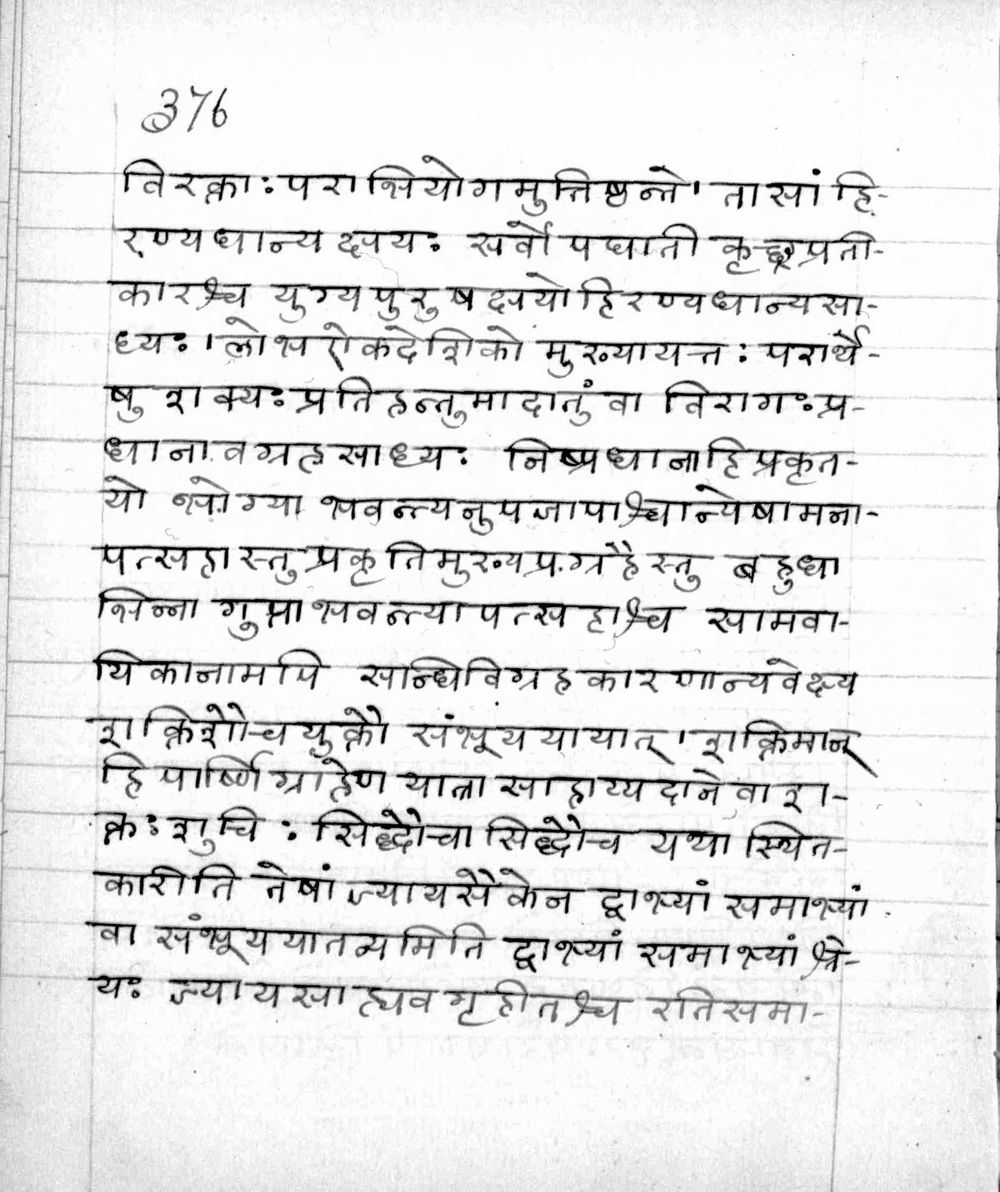 376
विरक्ताः पराभियोगमुत्तिष्ठन्ते। तासां हि-
रण्यधान्यक्षयः सर्वोपघाती कृच्छ्रप्रती-
कारश्च युग्यपुरुषक्षयो हिरण्यधान्यसा-
ध्यः। लोभ ऐकदेशिको मुख्यायत्तः परार्थे-
षु शक्यः प्रतिहन्तुमादातुं वा विरागः प्र-
धानावग्रहसाध्यः निष्प्रधाना हि प्रकृत-
यो भोग्या भवन्त्यनुपजापाश्चान्येषामना-
पत्सहास्तु प्रकृतिमुख्यप्रग्रहैस्तु बहुधा
भिन्ना गुप्ता भवन्त्यापत्सहाश्च सामवा-
यिकानामपि सन्धिविग्रहकारणान्यवेक्ष्य
शक्तिशौचयुक्तौ संभूय यायात्। शक्तिमान्
हि पार्ष्णिग्राहेण यात्रा साहाय्यदाने वा श-
क्तः शुचिः सिद्धौ चासिद्धौ च यथा स्थित-
कारीति तेषां ज्यायसैकेन द्वाभ्यां समाभ्यां
वा संभूय यातव्यमिति द्वाभ्यां समाभ्यां श्रे-
यः ज्यायसा ह्यवगृहीतश्च रतिसमा-